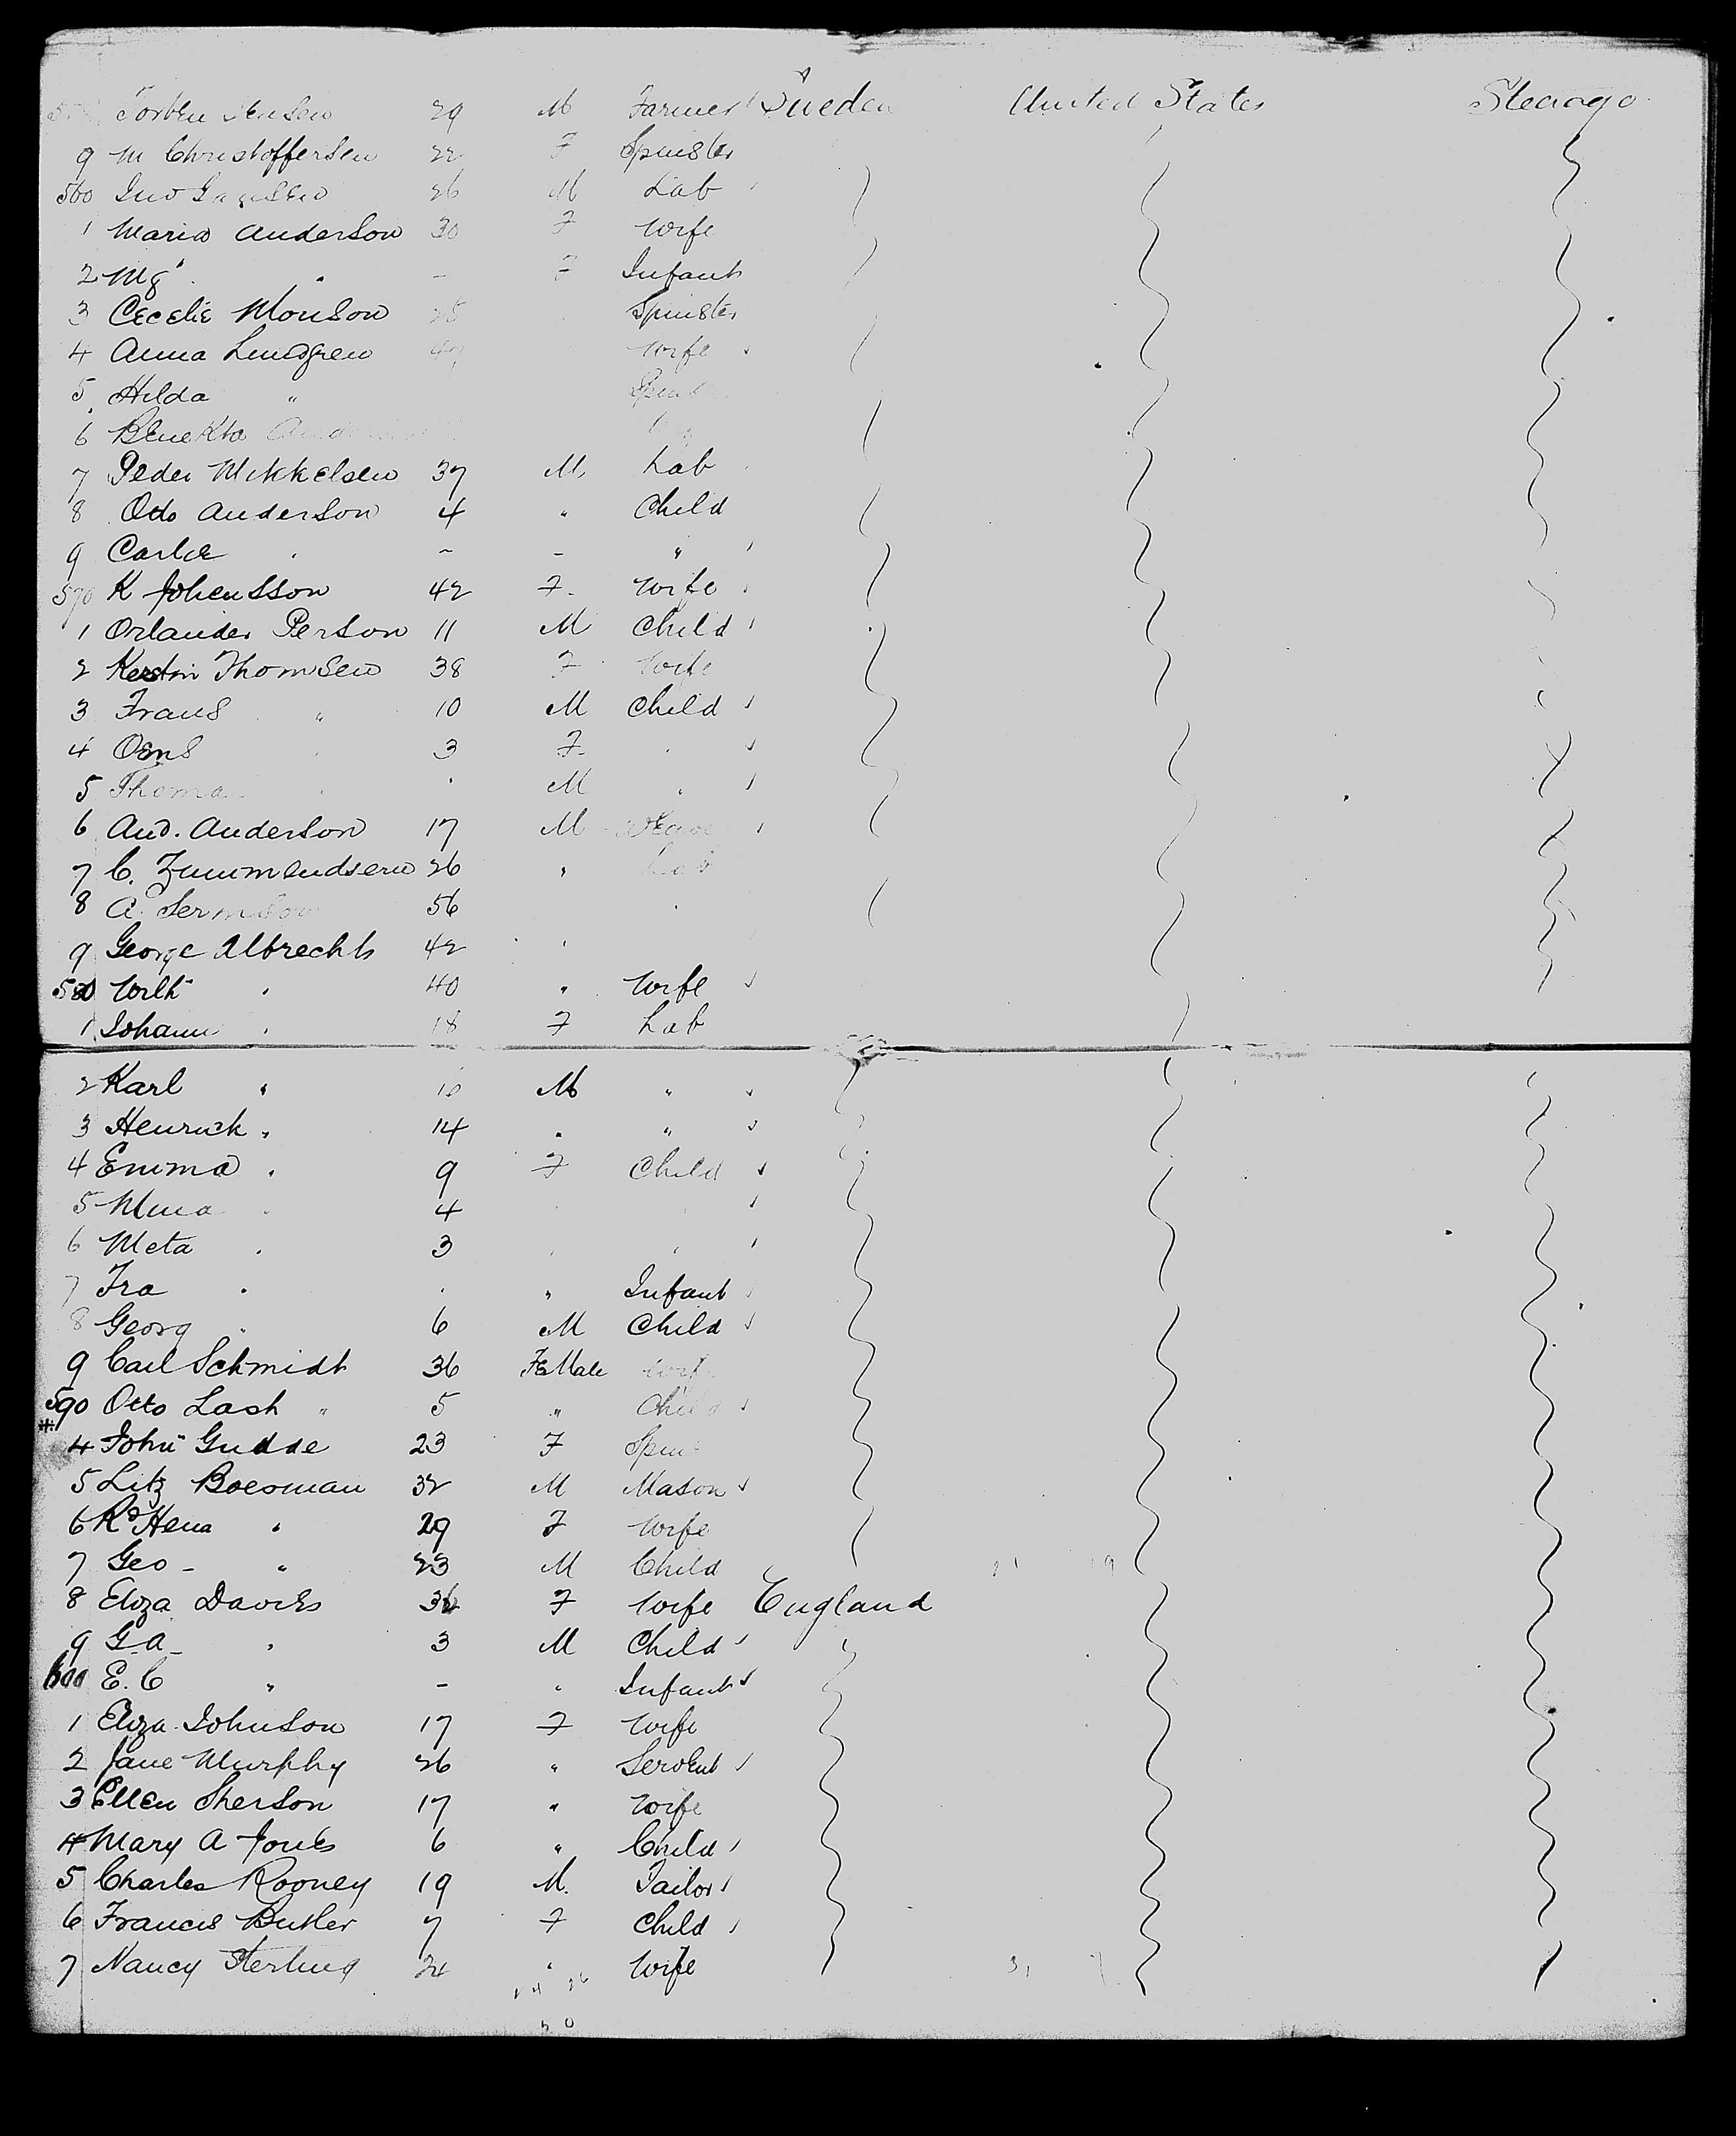 Torben Jensen 29 M Farmer Sweden United States Steerage
9 M Christoffersen 22 F Spinster
560 26 M Lab
1 Maria Anderson 30 F Wife
2 Mg " - F Infant
3 Cecelie Monson 25 Spinster
4 Anna Lindgren Wife
5 Hilda "
6
7 Peder Mikkelsen 37 M Lab
8 Otto Anderson 4 " Child
9 Carloe " - - "
570 K Johensson 42 F. Wife
1 Orlander Person 11 M Child
2 Kerstin Thomsen 38 F Wife
3 Frans " 10 M Child
4 3 F.
5 Thoma M
6 And. Anderson 17 M
7 C. Zummendsern 26 " Lab
8 A. 56
9 George Albrechts 42
580 Wilh " 40 " Wife
1 Johann " 18 F Lab
2 Karl " 16 M "
3 Henrick " 14 " "
4 Emma " 9 F Child
5 Mina 4
6 Meta " 3
7 Fra " " Infant
8 Georg " 6 M Child
9 Carl Schmidt 36 FeMale Wife
590 Otto Lash " 5 " Child
4 John Gudde 23 F
5 Litz Boesman 32 M Mason
6 Rd Hena " 29 F Wife
7 Geo - " 23 M Child
8 Eliza Davies F Wife England
9 G. A - " 3 M Child
600 E. C " - " Infant
1 Eliza Johnson 17 F Wife
2 Jane Murphy 26 " Servent
3 Ellen Sherson 17 " Wife
4 Mary A Jones 6 " Child
5 Charles Rooney 19 M. Tailor
6 Francis Butler 7 F Child
7 Nancy Sterling 24 " Wife